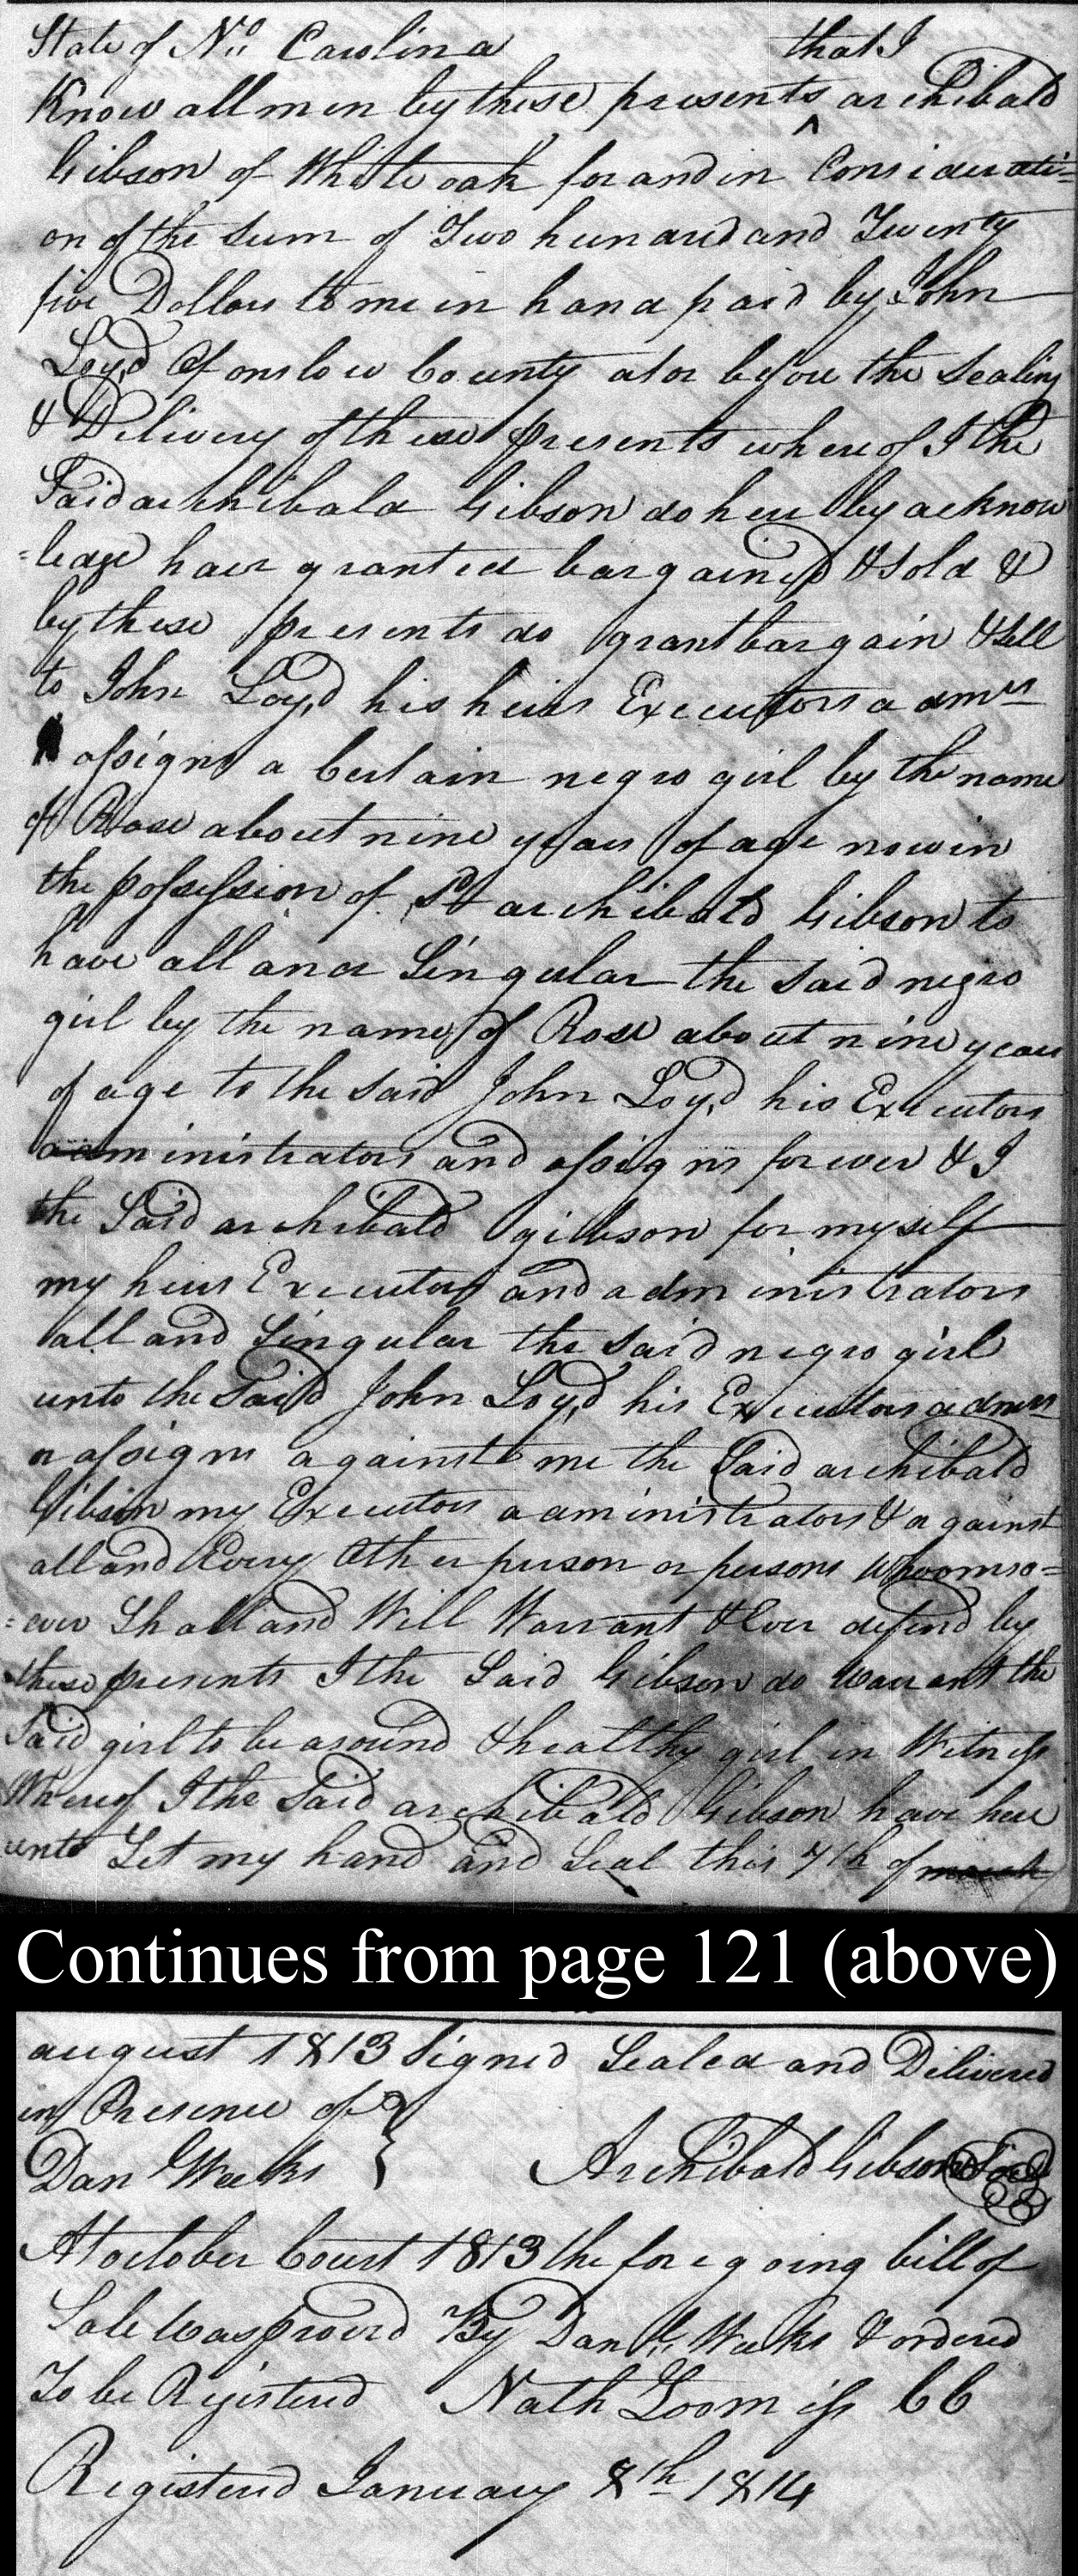 State of No. Carolina that I
Know all men by these presents ^ archibald
Gibson of White oak for and in Considerati=
on of the Sum of Two hundred and Twenty
five Dollars to me in hand paid by John
Loyd Of onslow County ator before the Sealing
& Delivery of these presents where of I the
Said archibald Gibson do here by acknow
=ledge have granted bargained & Sold &
by these presents do grant bargain & Sell
to John Loyd his heirs Executors admrs
assigns a Certain negro girl by the name
of Rose about nine years of age now in
the possession of Sd archibald Gibson to
have all and Singular the Said negro
girl by the name of Rose about nine years
of age to the Said John Loyd his Executors
administrators and assigns forever & I
the Said archibald gibson for myself
my heirs Executors and administrators
all and Singular the Said negro girl
unto the Said John Loyd his Executors admrs
or assigns against me the Said archibald
Gibson my Executors administrators & against
all and Every Other person or persons Whomso=
=ever Shall and Will Warrant & Ever defend by
these presents I the Said Gibson do Warrant the
Said girl to be a sound & healthy girl in Witness
Whereof I the Said archibald Gibson have here
unto Set my hand and Seal this 7th of march
Continues from page 121 (above)
august 1813 Signed Sealed and Delivered
in Presence of
Dan Weeks } Archibald Gibson Seal
At october Court 1813 the foregoing bill of
Sale Was proved By Danl. Weeks & ordered
To be Registered Nath Loomiss CC
Registered January 8th 1814